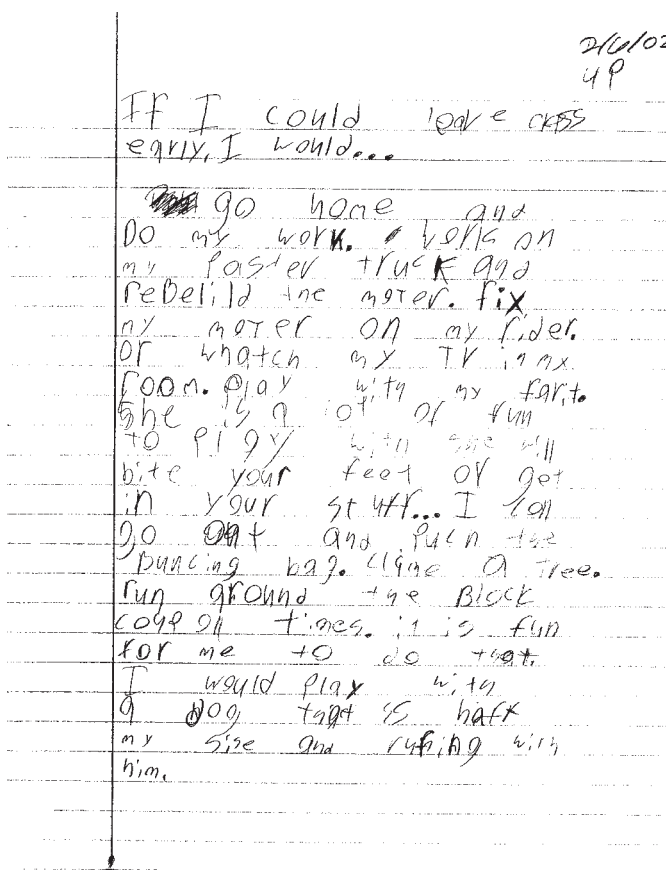 2/6/02
4P
If I could leave class
early, I would...
go home and
Do my work. work on
my Paster truck and
reBelild the moter. fix
my moter on my rider.
or whatch my TV in my
room. play with my farit.
She is a lot of fun
to play with she will
bite your feet or get
in your stuff... I can
go out and puch the
puncing bag. clime a Tree.
run around the Block
coup oll times. it is fun
for me to do that.
I would Play with
a Dog that is half
my sise and runing with
him.